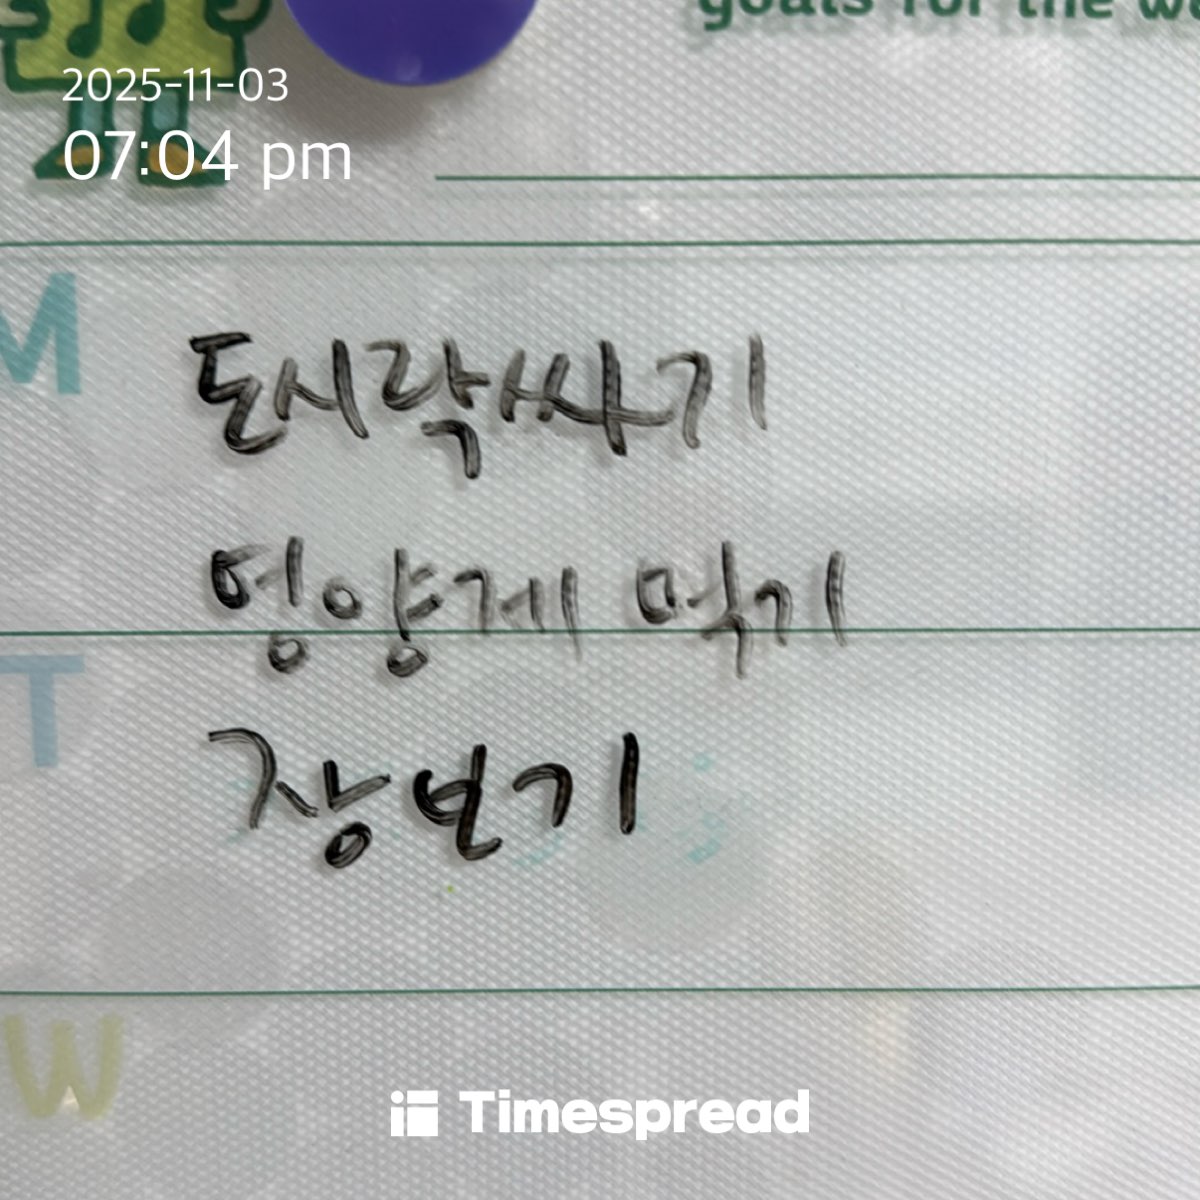 goals for the we
2025-11-03
07:04 pm
M
도시락싸기
영양제 먹기
T
장보기
W
Timespread